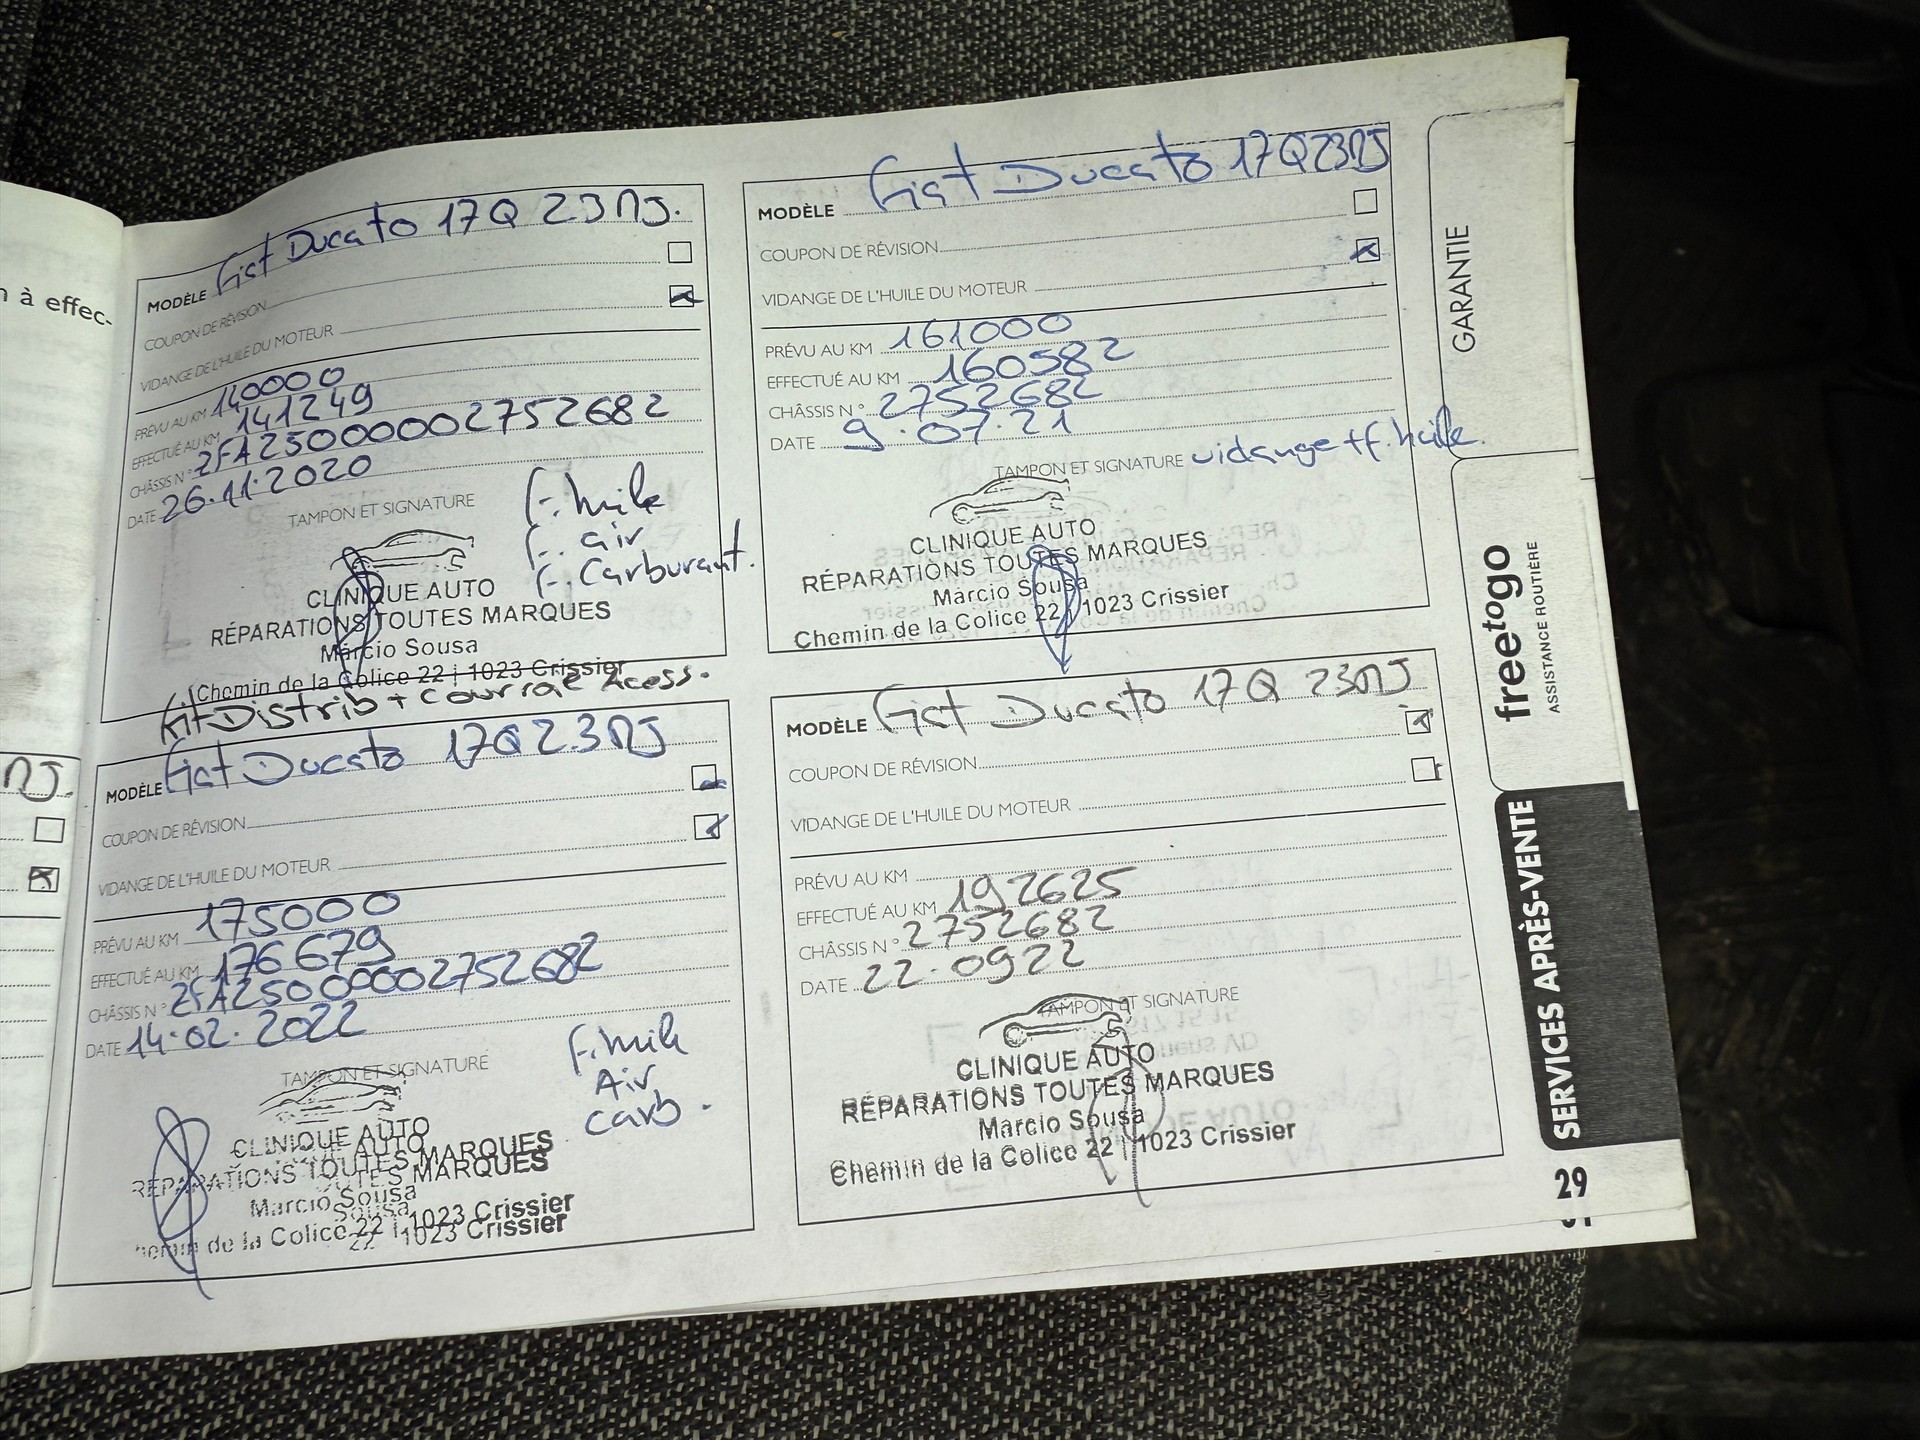 n à effec-
NJ.
MODÈLE Fiat Ducato 17Q 23NJ.
COUPON DE RÉVISION
VIDANGE DE L'HUILE DU MOTEUR
PRÉVU AU KM 140000
EFFECTUÉ AU KM 141249
CHÂSSIS N° ZFA25000002752682
DATE 26.11.2020
TAMPON ET SIGNATURE
F. huile
F. air
F. Carburant.
CLINIQUE AUTO
RÉPARATIONS TOUTES MARQUES
Márcio Sousa
Chemin de la Colice 22 | 1023 Crissier
Kit Distrib + courroie Acess.
MODÈLE Fiat Ducato 17Q23NJ
COUPON DE RÉVISION
VIDANGE DE L'HUILE DU MOTEUR
PRÉVU AU KM 161000
EFFECTUÉ AU KM 160582
CHÂSSIS N° 2752682
DATE 9.07.21
TAMPON ET SIGNATURE vidange + f. huile.
CLINIQUE AUTO
RÉPARATIONS TOUTES MARQUES
Márcio Sousa
Chemin de la Colice 22 | 1023 Crissier
MODÈLE Fiat Ducato 17Q 2.3NJ
COUPON DE RÉVISION
VIDANGE DE L'HUILE DU MOTEUR
PRÉVU AU KM 175000
EFFECTUÉ AU KM 176679
CHÂSSIS N° ZFA25000002752682
DATE 14.02.2022
TAMPON ET SIGNATURE
F. huile
Air
carb.
CLINIQUE AUTO
RÉPARATIONS TOUTES MARQUES
Márcio Sousa
Chemin de la Colice 22 | 1023 Crissier
MODÈLE Fiat Ducato 17Q 23NJ
COUPON DE RÉVISION
VIDANGE DE L'HUILE DU MOTEUR
PRÉVU AU KM
EFFECTUÉ AU KM 192625
CHÂSSIS N° 2752682
DATE 22.0922
TAMPON ET SIGNATURE
CLINIQUE AUTO
RÉPARATIONS TOUTES MARQUES
Márcio Sousa
Chemin de la Colice 22 | 1023 Crissier
GARANTIE
freetogo
ASSISTANCE ROUTIÈRE
SERVICES APRÈS-VENTE
29